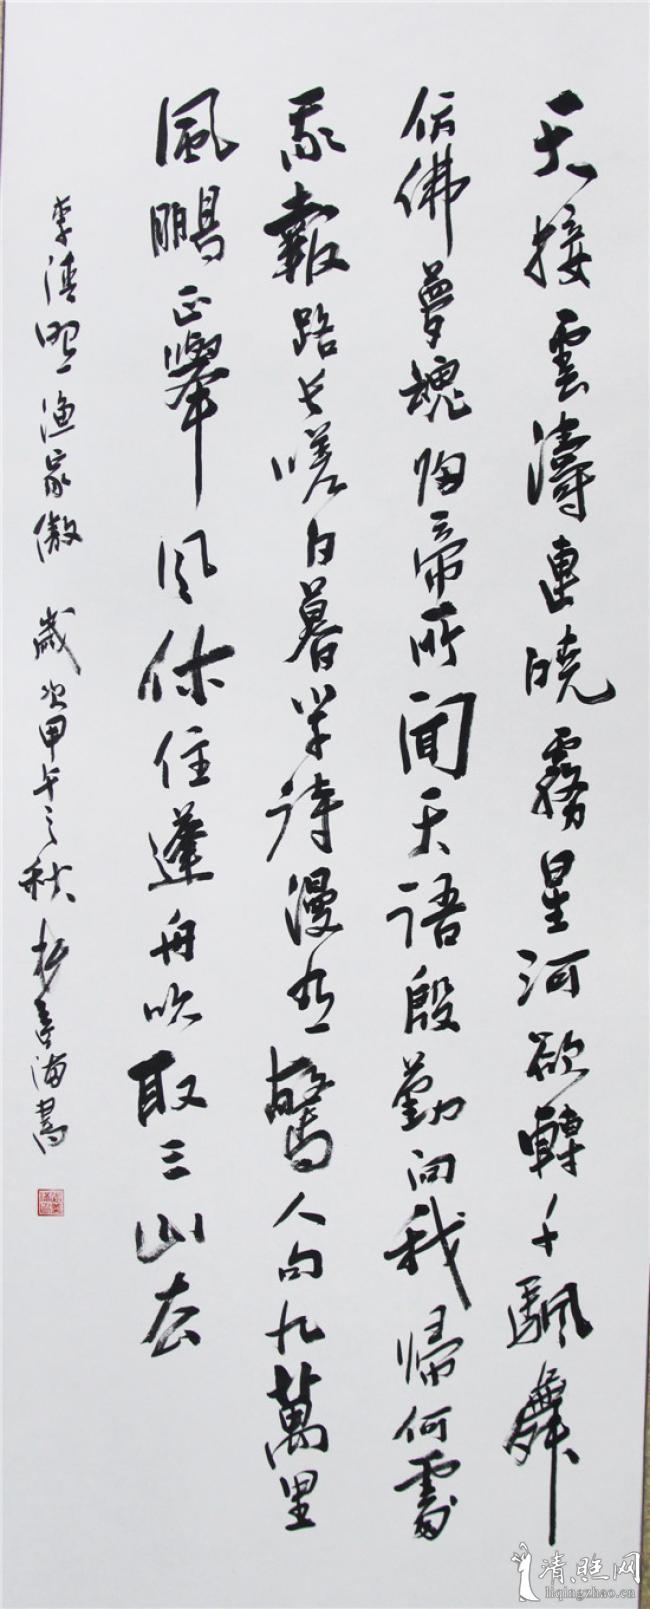 天接雲濤連曉霧星河欲轉千颿舞
仿佛夢魂歸帝所聞天語殷勤問我歸何處
我報路長嗟日暮學詩漫有驚人句九萬里
風鵬正舉风休住蓬舟吹取三山去
李清照漁家傲 歲次甲午之秋 海書
清照网
liqingzhao.cn